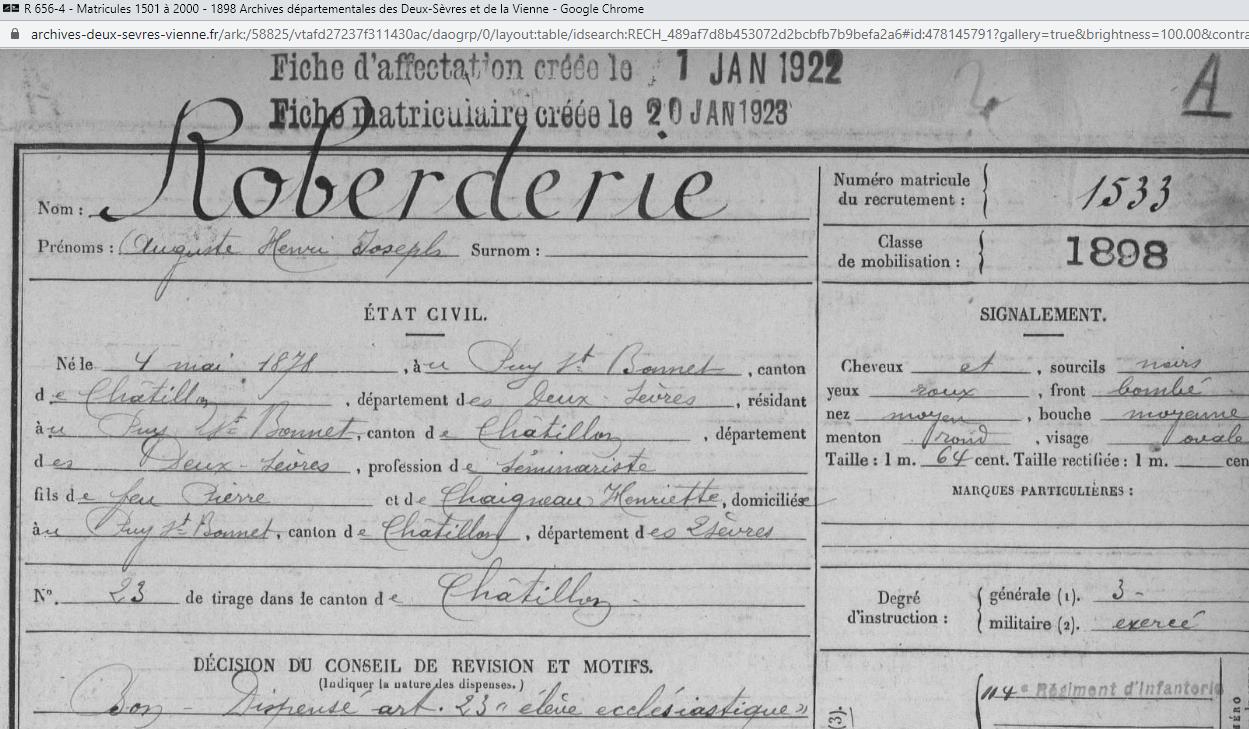 R 656-4 - Matricules 1501 à 2000 - 1898 Archives départementales des Deux-Sèvres et de la Vienne - Google Chrome
archives-deux-sevres-vienne.fr/ark:/58825/vtafd27237f311430ac/daogrp/0/layout:table/idsearch:RECH_489af7d8b453072d2bcbfb7b9befa2a6#id:478145791?gallery=true&brightness=100.00&contra
Fiche d'affectation créée le 1 JAN 1922
Fiche matriculaire créée le 20 JAN 1923
A
Nom : Roberderie
Prénoms : Auguste Henri Joseph Surnom :
Numéro matricule du recrutement : 1533
Classe de mobilisation : 1898
ÉTAT CIVIL.
Né le 4 mai 1878, à u Puy St Bonnet, canton
de Châtillon, département des Deux-Sèvres, résidant
à u Puy St Bonnet, canton de Châtillon, département
des Deux-Sèvres, profession de séminariste
fils de feu Pierre et de Chaigneau Henriette, domiciliés
à u Puy St Bonnet, canton de Châtillon, département des 2 Sèvres
N°. 23 de tirage dans le canton de Châtillon
DÉCISION DU CONSEIL DE REVISION ET MOTIFS.
(Indiquer la nature des dispenses.)
Bon - Dispensé art. 23 "élève ecclésiastique"
SIGNALEMENT.
Cheveux et, sourcils noirs
yeux roux, front bombé
nez moyen, bouche moyenne
menton rond, visage ovale
Taille : 1 m. 64 cent. Taille rectifiée : 1 m. cen
MARQUES PARTICULIÈRES :
Degré d'instruction : générale (1). 3 -
militaire (2). exercé
114e Régiment d'Infanterie
(3).
MÉRO